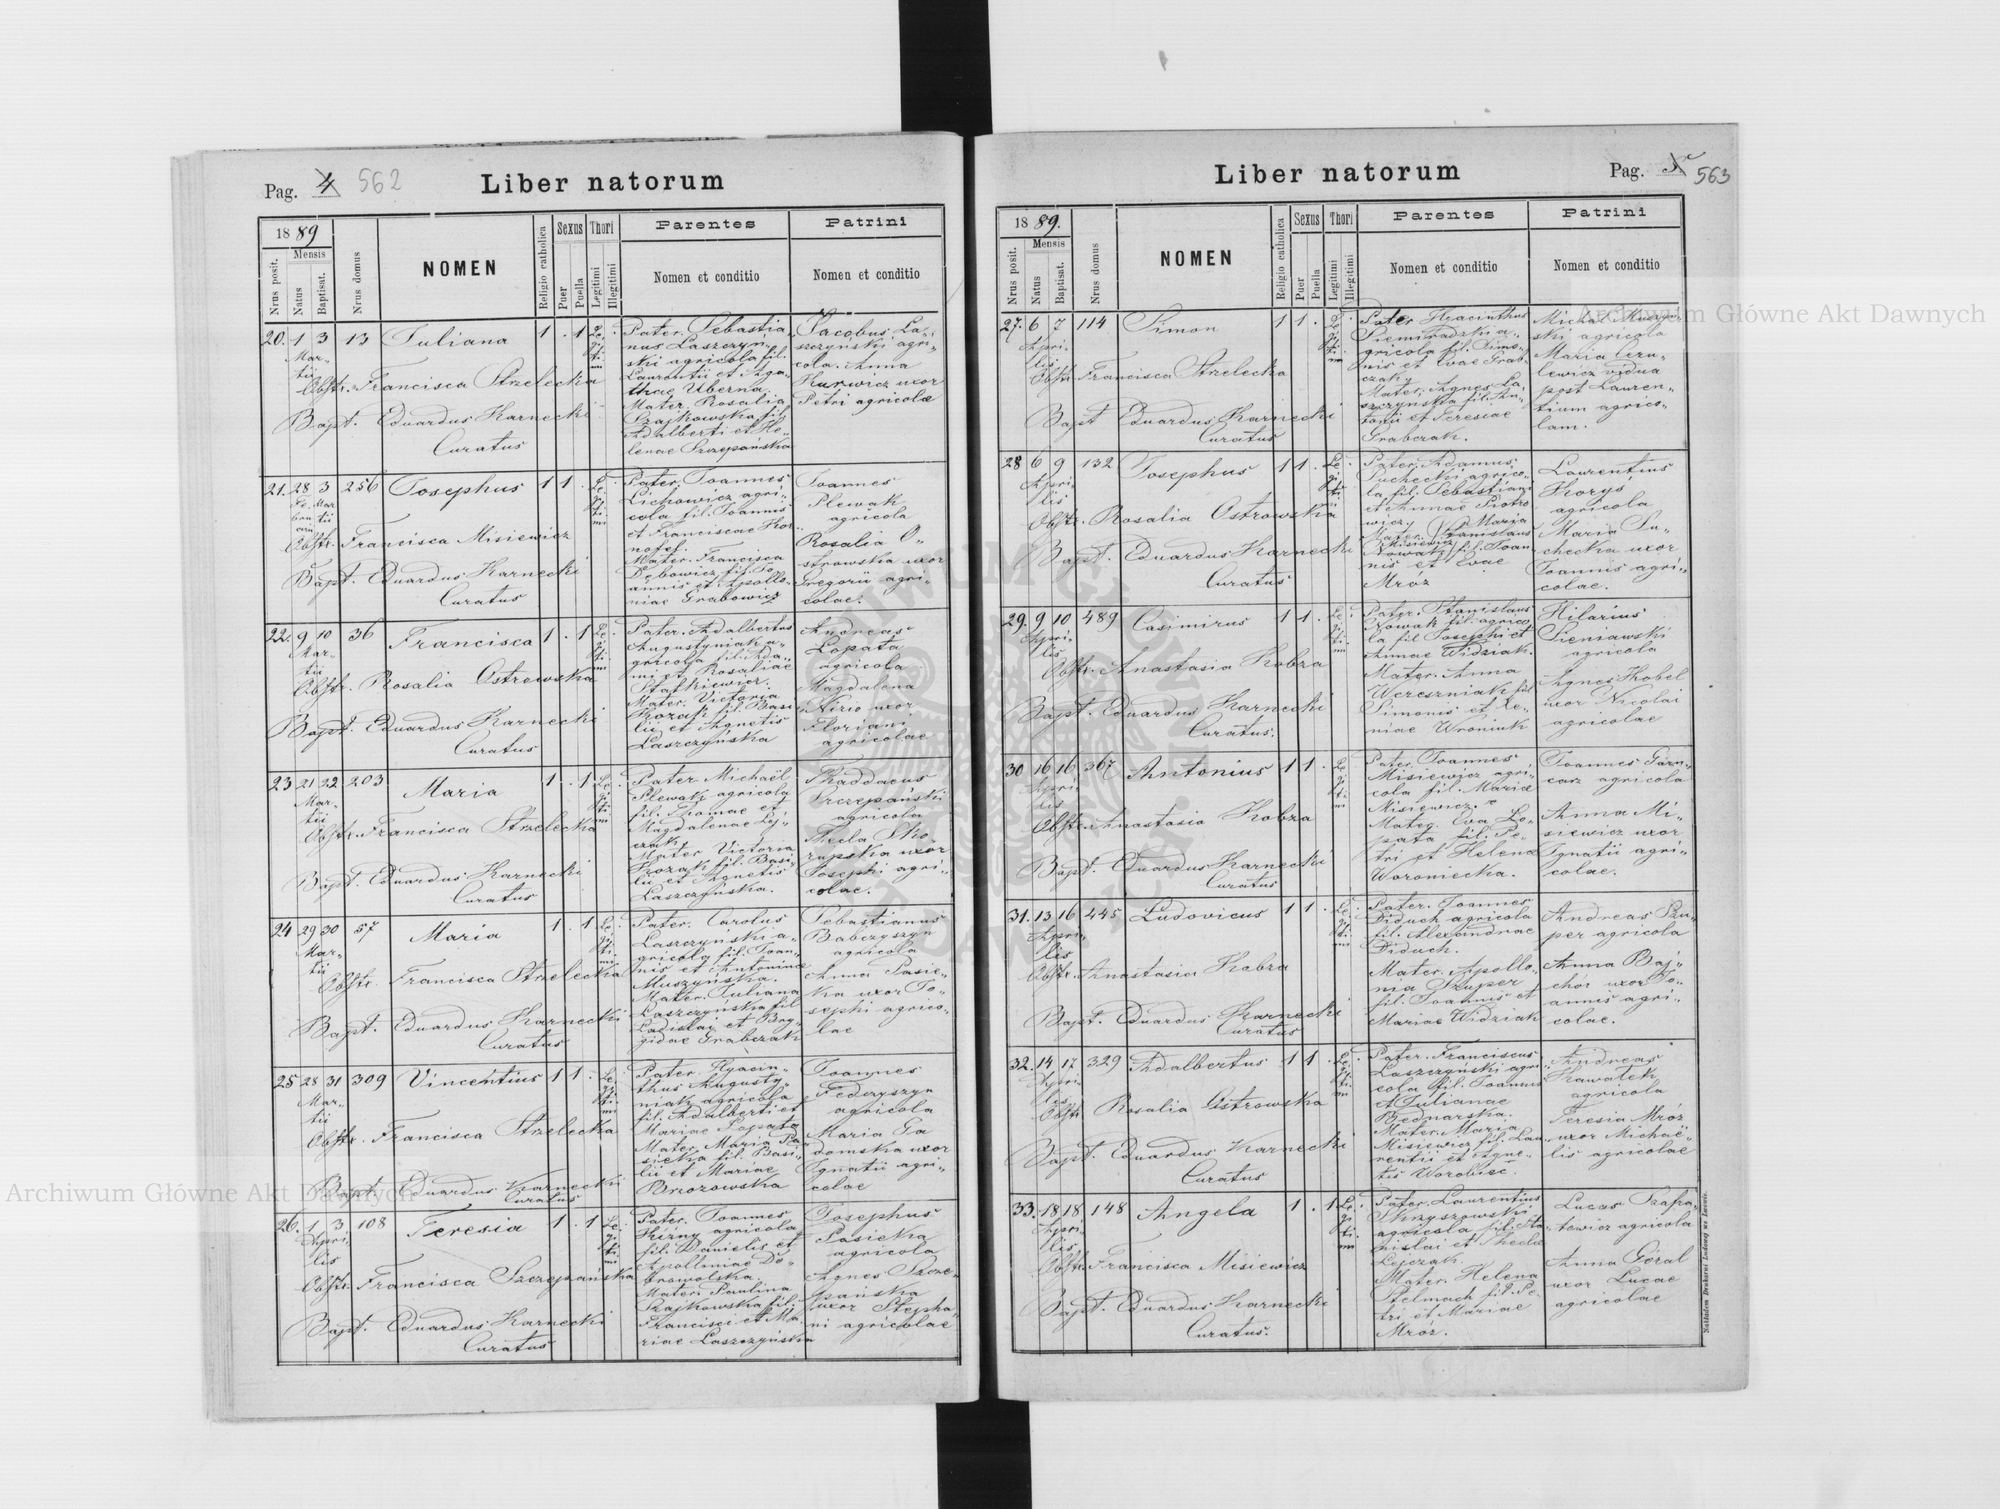 Pag. 4 562
Liber natorum
18 89
Mensis
Nrus posit.
Natus
Baptisat.
Nrus domus
NOMEN
Religio catholica
Sexus
Puer
Puella
Thori
Legitimi
Illegitimi
Parentes
Nomen et conditio
Patrini
Nomen et conditio
20. 1 3 13 Juliana 1 . 1
Martii
Obstr. Francisca Strzelecka
Bapt. Eduardus Karnecki
Curatus
Pater. Sebastia-
nus Laszczyń-
ski agricola fil.
Laurentii et Aga-
thae Uberna.
Mater Rosalia
Szajkowska fil.
Adalberti et He-
lenae Szczepańska
Jacobus La-
szczyński agri-
cola. Anna
Kurwicz uxor
Petri agricolae
21. 28 3 256 Josephus 1 1 .
Obstr. Francisca Misiewicz
Bapt. Eduardus Karnecki
Curatus
Pater. Joannes
Lichowicz agri-
cola fil. Joannis
et Franciscae Kor-
nofel.
Mater. Francisca
Dębowicz fil. Jo-
annis et Apollo-
niae Grabowicz
Joannes
Plewak
agricola
Rosalia O-
strowska uxor
Gregorii agri-
colae.
22. 9 10 36 Francisca 1 . 1
Martii
Obstr. Rosalia Ostrowska
Bapt. Eduardus Karnecki
Curatus
Pater. Adalbertus
Augustyniak a-
gricola fil. Ada-
mi et Rosaliae
Statkiewicz.
Mater. Victoria
Kozak fil. Basi-
lii et Agnetis
Laszczyńska
Andreas
Łopata
agricola
Magdalena
uxor
Floriani
agricolae
23 21 22 203 Maria 1 . 1
Martii
Obstr. Francisca Strzelecka
Bapt. Eduardus Karnecki
Curatus
Pater Michaël
Plewak agricola
fil. Thomae et
Magdalenae Lej-
czak
Mater Victoria
Kozak fil. Basi-
lii et Agnetis
Laszczyńska.
Thaddaeus
Szczepański
agricola
Thecla Sko-
rupska uxor
Josephi agri-
colae.
24 29 30 57 Maria 1 . 1
Martii
Obstr. Francisca Strzelecka
Bapt. Eduardus Karnecki
Curatus
Pater. Carolus
Laszczyński a-
gricola fil. Joan-
nis et Antoninae
Muszyńska.
Mater. Juliana
Laszczyńska fil.
Ladislai et Bry-
gidae Grabczak
Sebastianus
Babczyszyn
agricola
Anna Pasie-
ka uxor Jo-
sephi agrico-
lae
25 28 31 309 Vincentius 1 1 .
Martii
Obstr. Francisca Strzelecka
Bapt. Eduardus Karnecki
Curatus
Pater. Hyacin-
thus Augusty-
niak agricola
fil. Adalberti et
Mariae Łopata
Mater. Maria Pa-
siecka fil. Basi-
lii et Mariae
Brzozowska
Joannes
Federyszyn
agricola
Maria Ga-
domska uxor
Ignatii agri-
colae
26. 1 3 108 Teresia 1 . 1
Aprilis
Obstr. Francisca Szczepańska
Bapt. Eduardus Karnecki
Curatus
Pater. Joannes
agricola
fil. Danielis et
Apolliniae Do-
browolska.
Mater. Paulina
Rajkowska fil.
Francisci et Ma-
riae Laszczyńska
Josephus
Pasieka
agricola
Agnes Szcze-
pańska
uxor Stepha-
ni agricolae
Liber natorum
Pag. 5 563
18 89.
Mensis
Nrus posit.
Natus
Baptisat.
Nrus domus
NOMEN
Religio catholica
Sexus
Puer
Puella
Thori
Legitimi
Illegitimi
Parentes
Nomen et conditio
Patrini
Nomen et conditio
27. 6 7 114 Simon 1 1 .
Aprilis
Obstr. Francisca Strzelecka
Bapt Eduardus Karnecki
Curatus
Pater Hyacinthus
Siemiradzki a-
gricola fil. Simo-
nis et Evae Grab-
czak,
Mater. Agnes La-
szczyńska fil. An-
tonii et Teresiae
Grabczak.
Michal
agricola
Maria
vidua
post Lauren-
tium agrico-
lam.
28 6 9 132 Josephus 1 1 .
Aprilis
Obstr. Rosalia Ostrowska
Bapt. Eduardus Karnecki
Curatus
Pater. Adamus
Suchecki agrico-
la fil. Sebastiani
et Annae Piotro-
wicz
Mater. Maria
Misiewicz
Nowak fil. Joan-
nis et Evae
Mróz
Laurentius
Koryś
agricola
Maria Su-
checka uxor
Joannis agri-
colae.
29. 9 10 489 Casimirus 1 1 .
Aprilis
Obstr. Anastasia Kobza
Bapt. Eduardus Karnecki
Curatus.
Pater. Stanislaus
Nowak agrico-
la fil. Josephi et
Annae Widziak.
Mater. Anna
Wereszniak fil.
Simonis et Xe-
niae Woroniuk
Hilarius
Sieniawski
agricola
Agnes Kobel
uxor Nicolai
agricolae
30 16 16 367 Antonius 1 1 .
Aprilis
Obstr. Anastasia Kobza
Bapt. Eduardus Karnecki
Curatus
Pater. Joannes
Misiewicz agri-
cola fil. Mariae
Misiewicz.
Mater. Eva Ło-
pata fil. Pe-
tri et Helena
Woroniecka.
Joannes Garn-
carz agricola
Anna Mi-
siewicz uxor
Ignatii agri-
colae.
31. 13 16 445 Ludovicus 1 1 .
Aprilis
Obstr. Anastasia Kobza
Bapt. Eduardus Karnecki
Curatus
Pater. Joannes
Diduch agricola
fil. Alexandrae
Diduch.
Mater. Apollo-
nia Szuper
fil. Joannis et
Mariae Widziak
Andreas Szu-
per agricola
Anna Baj-
chór uxor Jo-
annis agri-
colae.
32. 14 17 329 Adalbertus 1 1 .
Aprilis
Obstr Rosalia Ostrowska
Bapt. Eduardus Karnecki
Curatus
Pater. Franciscus
Laszczyński agri-
cola fil. Joannis
et Julianae
Bednarska.
Mater. Maria
Misiewicz fil. Lau-
rentii et Agne-
tis Worobiec.
Andreas
Kawałek
agricola
Teresia Mróz
uxor Michaë-
lis agricolae
33. 18 18 148 Angela 1 . 1
Aprilis
Obstr. Francisca Misiewicz
Bapt. Eduardus Karnecki
Curatus.
Pater. Laurentius
Skrzyszowski
agricola fil. Sta-
nislai et Theclae
Lepczak.
Mater. Helena
Stelmach fil. Pe-
tri et Mariae
Mróz.
Lucas Szafra-
towicz agricola
Anna Góral
uxor Lucae
agricolae
Nakładem Drukarni Ludowej we Lwowie.
Archiwum Główne Akt Dawnych
Archiwum Główne Akt Dawnych
ARCHIWUM GŁÓWNE